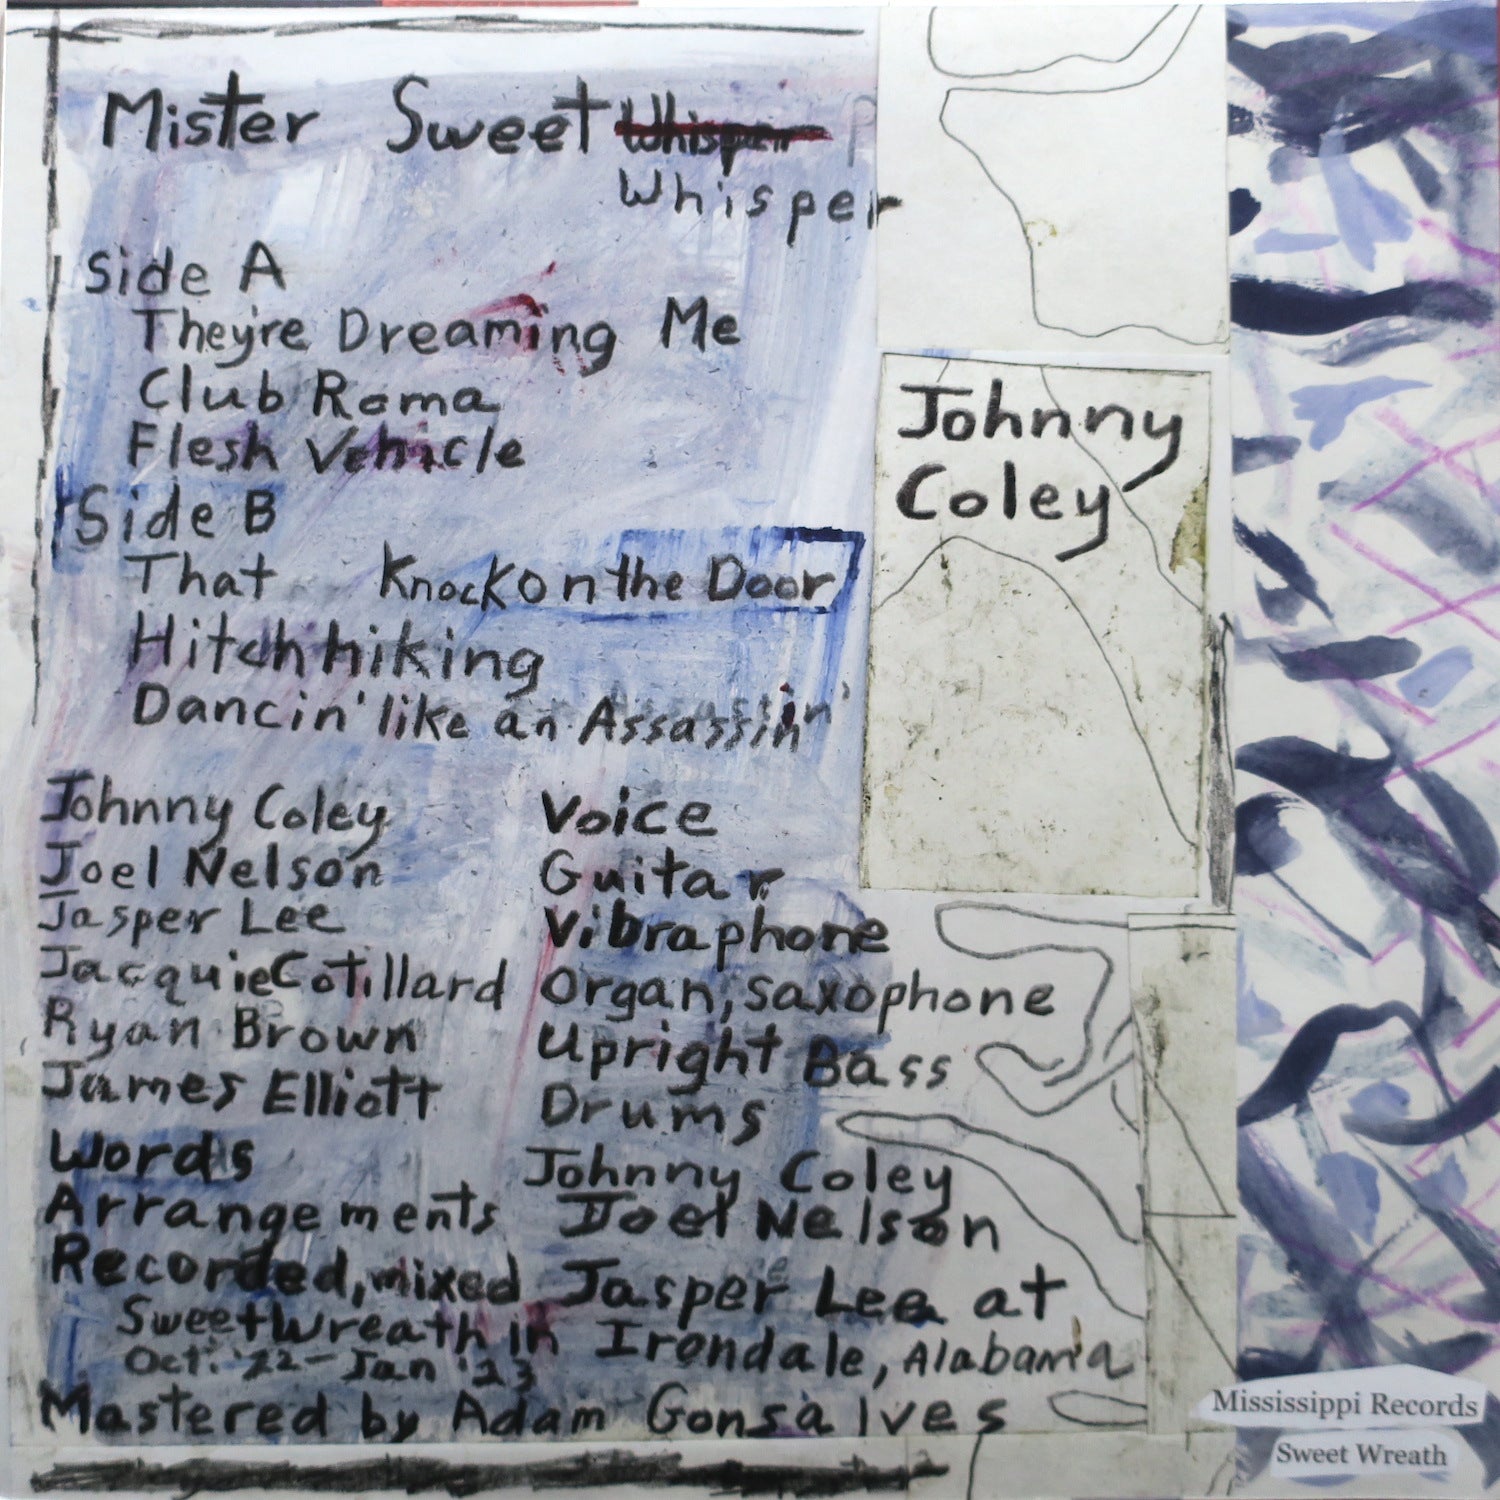 Mister Sweet Whisper
Whisper
Side A
They're Dreaming Me
Club Roma
Flesh Vehicle
Side B
That Knock on the Door
Hitchhiking
Dancin' like an Assassin'
Johnny
Coley
Johnny Coley Voice
Joel Nelson Guitar
Jasper Lee Vibraphone
Jacquie Cotillard Organ, saxophone
Ryan Brown Upright Bass
James Elliott Drums
Words Johnny Coley
Arrangements Joel Nelson
Recorded, mixed Jasper Lee at
Sweet Wreath in Irondale, Alabama
Oct. '22 - Jan '23
Mastered by Adam Gonsalves
Mississippi Records
Sweet Wreath